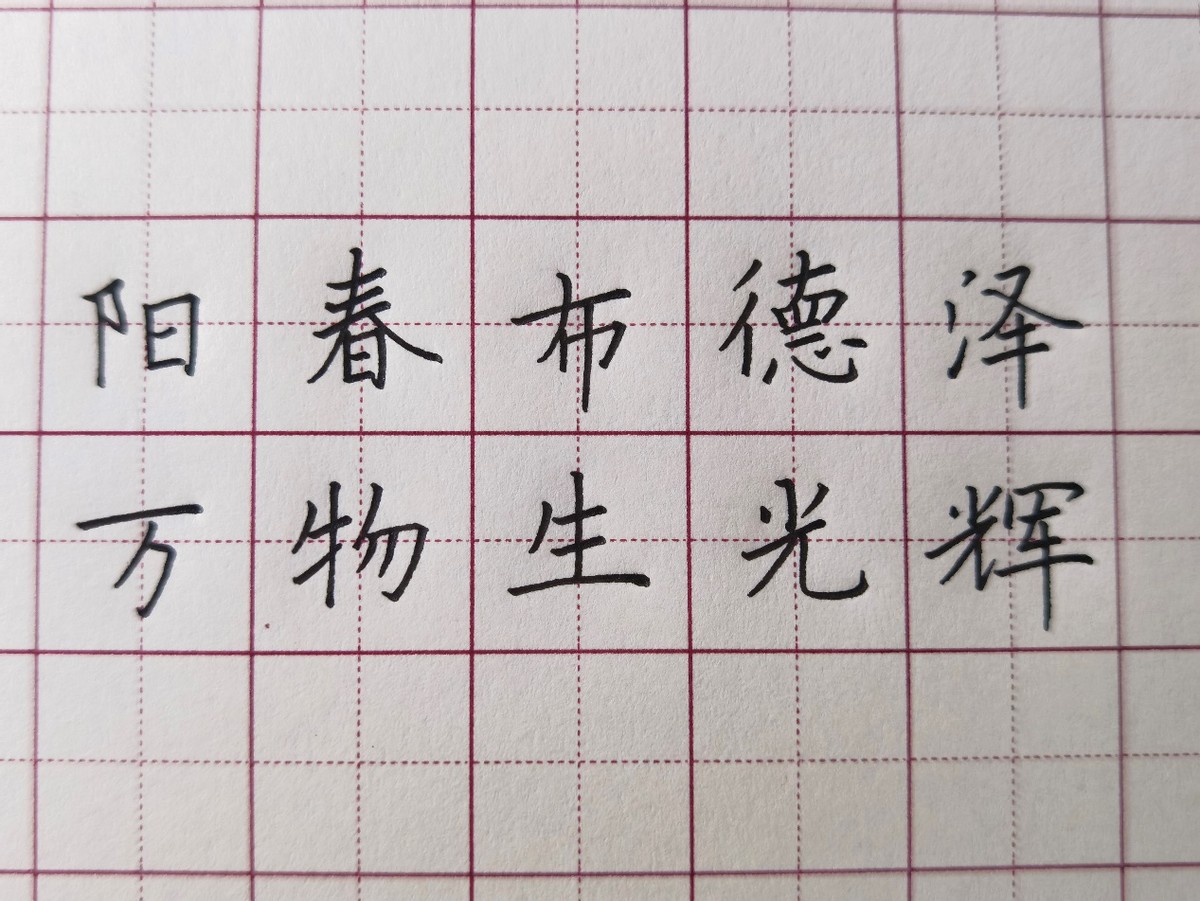 阳春布德泽
万物生光辉